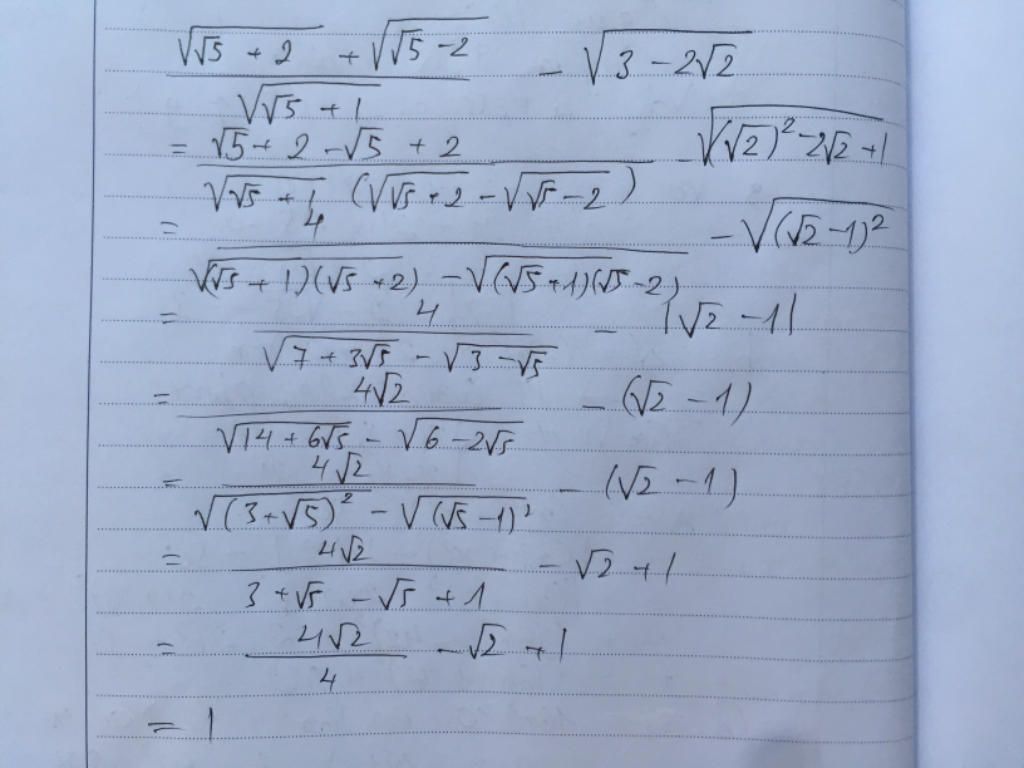 \frac{\sqrt{\sqrt{5}+2}+\sqrt{\sqrt{5}-2}}{\sqrt{\sqrt{5}+1}} - \sqrt{3-2\sqrt{2}}
= \frac{\sqrt{5}+2-\sqrt{5}+2}{\sqrt{\sqrt{5}+1}(\sqrt{\sqrt{5}+2}-\sqrt{\sqrt{5}-2})} - \sqrt{(\sqrt{2})^2-2\sqrt{2}+1}
= \frac{4}{\sqrt{(\sqrt{5}+1)(\sqrt{5}+2)}-\sqrt{(\sqrt{5}+1)(\sqrt{5}-2)}} - \sqrt{(\sqrt{2}-1)^2}
= \frac{4}{\sqrt{7+3\sqrt{5}}-\sqrt{3-\sqrt{5}}} - |\sqrt{2}-1|
= \frac{4\sqrt{2}}{\sqrt{14+6\sqrt{5}}-\sqrt{6-2\sqrt{5}}} - (\sqrt{2}-1)
= \frac{4\sqrt{2}}{\sqrt{(3+\sqrt{5})^2}-\sqrt{(\sqrt{5}-1)^2}} - (\sqrt{2}-1)
= \frac{4\sqrt{2}}{3+\sqrt{5}-\sqrt{5}+1} - \sqrt{2}+1
= \frac{4\sqrt{2}}{4} - \sqrt{2}+1
= 1